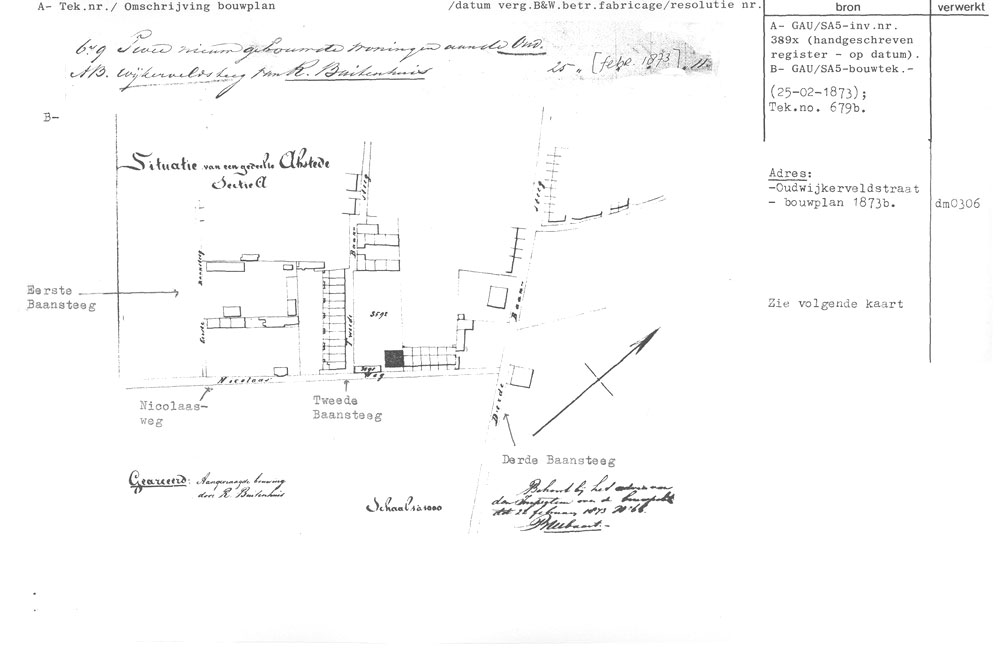 A- Tek.nr./ Omschrijving bouwplan /datum verg.B&W.betr.fabricage/resolutie nr.
bron
verwerkt
679 Twee nieuw gebouwde woningen aan de Oud.
AB. Wijkerveldsteeg van R. Buitenhuis 25 " [febr. 1873] 11.
A- GAU/SA5-inv.nr.
389x (handgeschreven
register - op datum).
B- GAU/SA5-bouwtek.-
(25-02-1873);
Tek.no. 679b.
B-
Situatie van een gedeelte Abstede
Sectie A
Adres:
-Oudwijkerveldstraat
- bouwplan 1873b.
dm0306
Steeg
Steeg
Baan
Baansteeg
Eerste
Baansteeg
Baan
Zie volgende kaart
3592
Eerste
Tweede
Nicolaas
Weg
Nicolaas-
weg
Tweede
Baansteeg
Derde
Derde Baansteeg
Gearceerd: Aangevraagde bouwing
door R. Buitenhuis
Schaal 1 à 1000
Behoort bij het advies van
den Inspecteur over de
dd 22 februarij 1873 No 66.